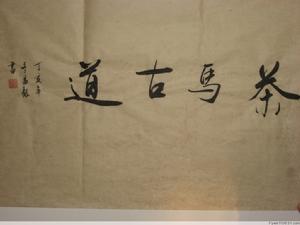 茶馬古道
丁亥年
書